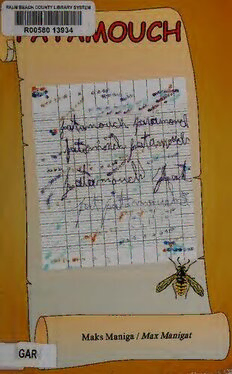 PALM BEACH COUNTY LIBRARY SYSTEM
R00580 13934
PATAMOUCH
patamouch patamouch
patamouch patamouch
patamouch pat
pat patamouch
Maks Maniga / Max Manigat
GAR